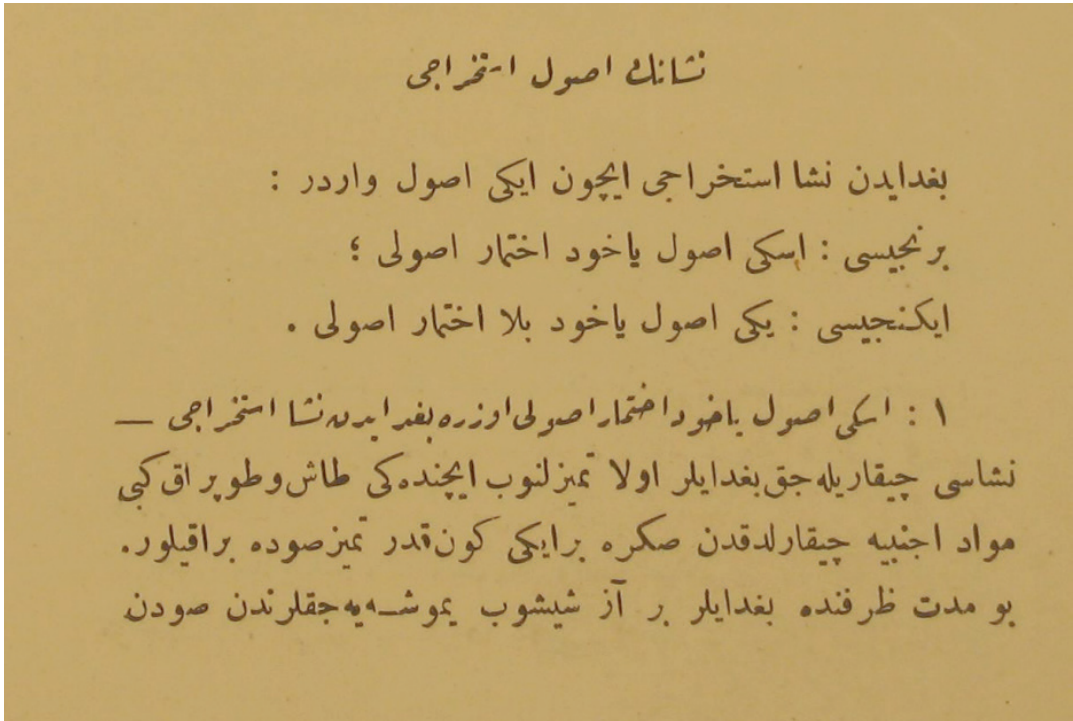 نشانك اصول استخراجى
بغدايدن نشا استخراجى ايچون ايكى اصول واردر :
برنجيسى : اسكى اصول ياخود اختمار اصولى ؛
ايكنجيسى : يكى اصول ياخود بلا اختمار اصولى .
١ : اسكى اصول ياخود اختمار اصولى اوزره بغدايدن نشا استخراجى —
نشاسى چيقاريله‌جق بغدايلر اولا تميزلنوب ايچنده‌كى طاش و طوپراق كبى
مواد اجنبيه چيقارلدقدن صكره برايكى كون قدر تميز صوده براقيلور.
بو مدت ظرفنده بغدايلر بر آز شيشوب يموشـه‌يه‌جقلرندن صودن